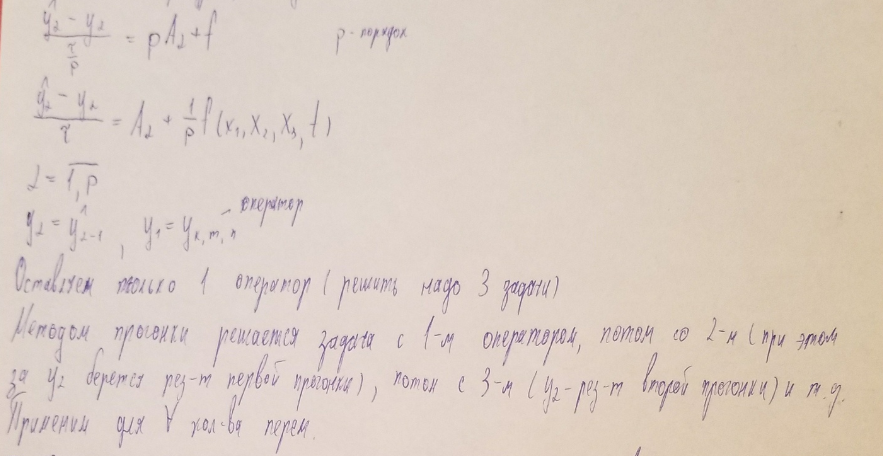 (ŷ₂ - y₂)/(τ/p) = pΛ₂ + f p - порядок
(ŷ₂ - y₂)/τ = Λ₂ + 1/p f(x₁, x₂, x₃, t)
2 = 1,p
y₂ = ŷ₂₋₁, y₁ = yₖ,ₘ,ₙ оператор
Оставляем только 1 оператор (решить надо 3 задачи)
Методом прогонки решается задача с 1-м оператором, потом со 2-м (при этом
за y₂ берется рез-т первой прогонки), потом с 3-м (y₂ - рез-т второй прогонки) и т.д.
Применим для ∀ кол-ва перем.